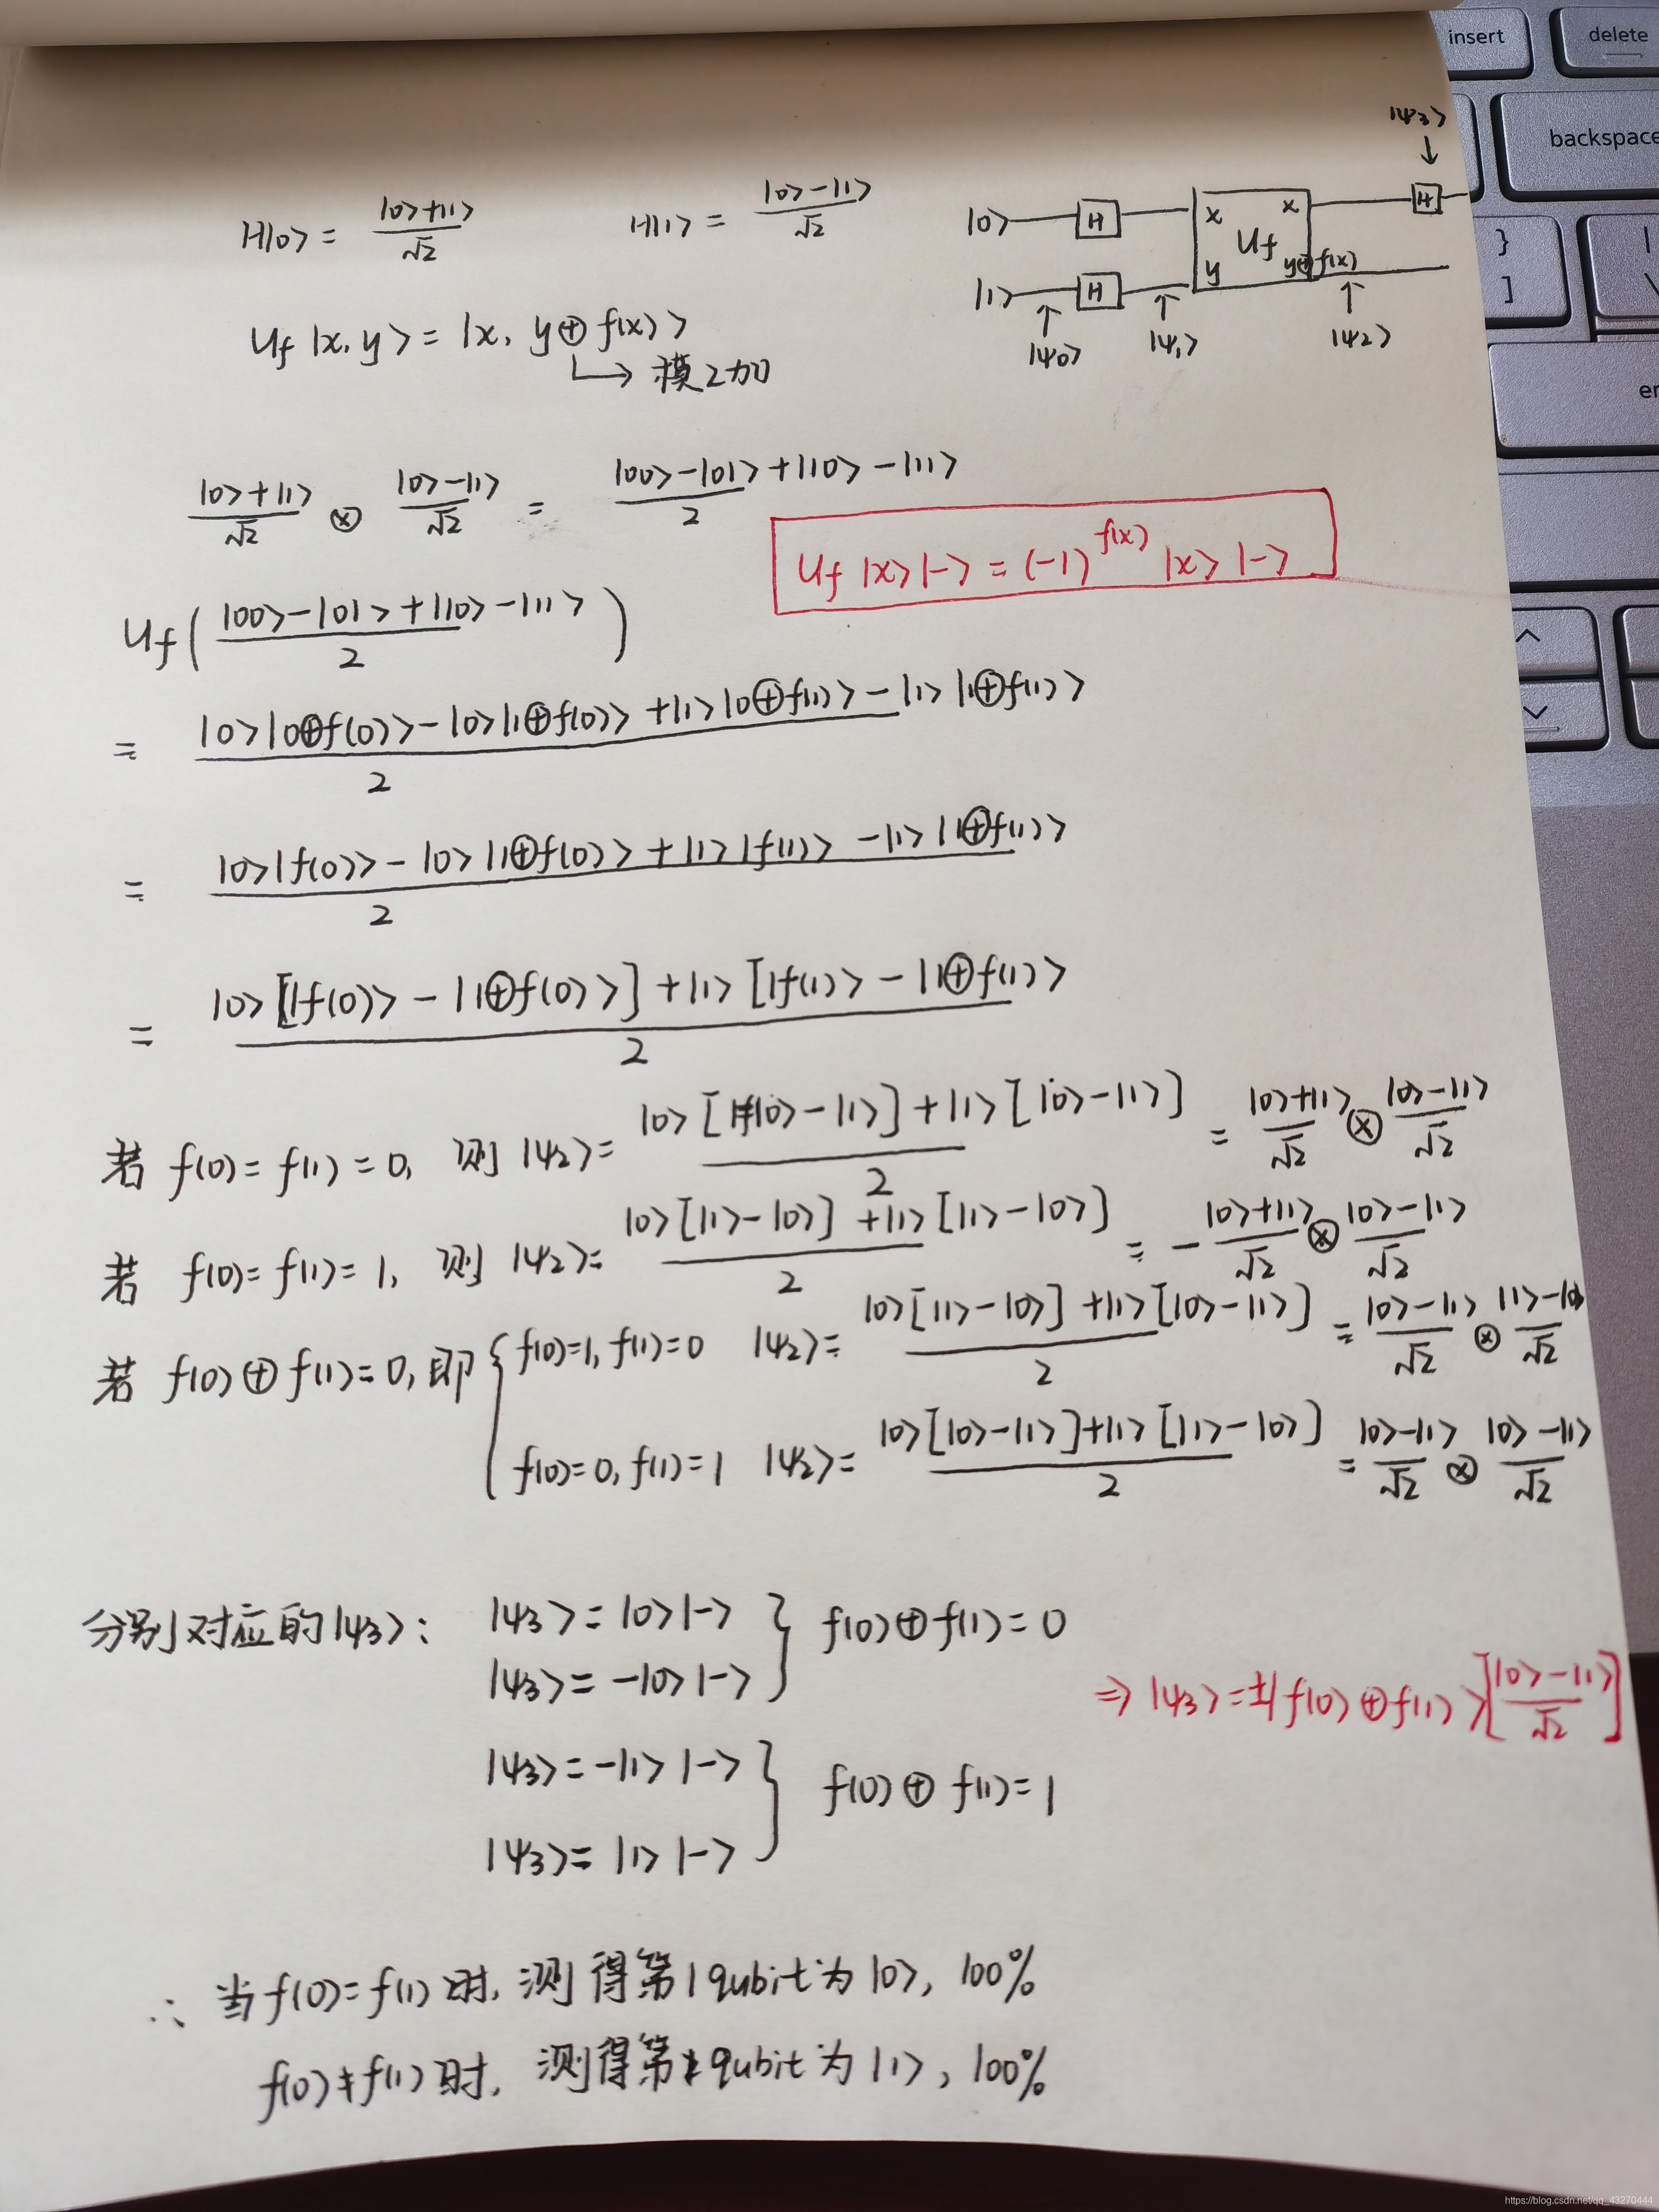 H|0> = (|0>+|1>)/√2   H|1> = (|0>-|1>)/√2
|0> H x x H |ψ3>
Uf
|1> H y y⊕f(x)
|ψ0> |ψ1> |ψ2>
Uf |x, y> = |x, y⊕f(x)>
模2加
(|0>+|1>)/√2 ⊗ (|0>-|1>)/√2 = (|00>-|01>+|10>-|11>)/2
Uf |x>|-> = (-1)^f(x) |x>|->
Uf((|00>-|01>+|10>-|11>)/2)
= (|0>|0⊕f(0)>-|0>|1⊕f(0)>+|1>|0⊕f(1)>-|1>|1⊕f(1)>)/2
= (|0>|f(0)>-|0>|1⊕f(0)>+|1>|f(1)>-|1>|1⊕f(1)>)/2
= (|0>[|f(0)>-|1⊕f(0)>]+|1>[|f(1)>-|1⊕f(1)>)/2
若 f(0)=f(1)=0, 则 |ψ2>= (|0>[|0>-|1>]+|1>[|0>-|1>])/2 = (|0>+|1>)/√2 ⊗ (|0>-|1>)/√2
若 f(0)=f(1)=1, 则 |ψ2>= (|0>[|1>-|0>]+|1>[|1>-|0>])/2 = -(|0>+|1>)/√2 ⊗ (|0>-|1>)/√2
若 f(0)⊕f(1)=0, 即 { f(0)=1, f(1)=0 |ψ2>= (|0>[|1>-|0>]+|1>[|0>-|1>])/2 = (|0>-|1>)/√2 ⊗ (|1>-|0>)/√2
f(0)=0, f(1)=1 |ψ2>= (|0>[|0>-|1>]+|1>[|1>-|0>])/2 = (|0>-|1>)/√2 ⊗ (|0>-|1>)/√2
分别对应的|ψ3>: |ψ3>=|0>|->
|ψ3>=-|0>|-> } f(0)⊕f(1)=0
⇒ |ψ3>=±|f(0)⊕f(1)>[(|0>-|1>)/√2]
|ψ3>=-|1>|->
|ψ3>=|1>|-> } f(0)⊕f(1)=1
∴ 当f(0)=f(1)时, 测得第1qubit为|0>, 100%
f(0)≠f(1)时, 测得第1qubit为|1>, 100%
insert
delete
backspace
}
]
|
\
https://blog.csdn.net/qq_43270444